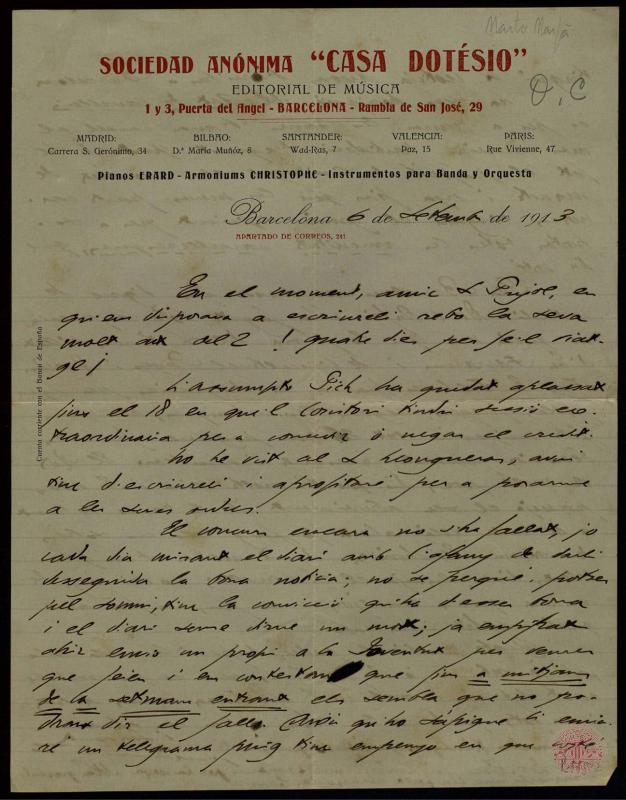 Marto Marfà
O, C
SOCIEDAD ANÓNIMA "CASA DOTÉSIO"
EDITORIAL DE MÚSICA
1 y 3, Puerta del Angel - BARCELONA - Rambla de San José, 29
MADRID: BILBAO: SANTANDER: VALENCIA: PARIS:
Carrera S. Gerónimo, 34 D.ª María Muñóz, 8 Wad-Ras, 7 Paz, 15 Rue Vivienne, 47
Pianos ERARD - Armoniums CHRISTOPHE - Instrumentos para Banda y Orquesta
Barcelona 6 de Setembre de 1913
APARTADO DE CORREOS, 241
Cuenta corriente con el Banco de España
En el moment, amic S Pujol, en
qu'em disposava a escriureli rebo la seva
molt at del 2 ! quatre dies per fe-l viat-
ge ¡
L'assumpto Pich ha quedat aplassat
fins el 18 en qu'l Consistori tindrà sessió ex-
traordinaria per a concedir o negar el credit.
No he vist al S Llongueras, avui
tinc d'escriureli i aprofitaré per a posarme
a les seves ordres.
El concurs encara no s'ha fallat, jo
cada dia mirant el diari amb l'afany de darli
desseguida la bona noticia; no se perquè, potser
pel somni, tinc la convicció qu'ha d'esser bona
i el diari sense dirne un mot; ja empipat
ahir envio un propi a la Joventut per veure
que feien i em contestaren que fins a mitjans
de la setmana entrant els sembla que no po-
dran dir el fallo. Aixís qu'ho sàpigue li envia-
ré un telegrama puig tinc empenyo en que